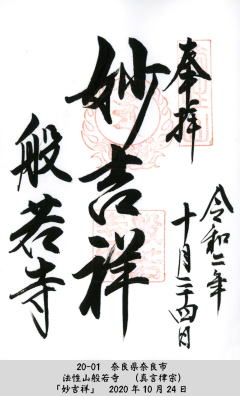 奉拝
令和二年
十月二十四日
妙吉祥
般若寺
20-01 奈良県奈良市
法性山般若寺 (真言律宗)
「妙吉祥」 2020年10月24日